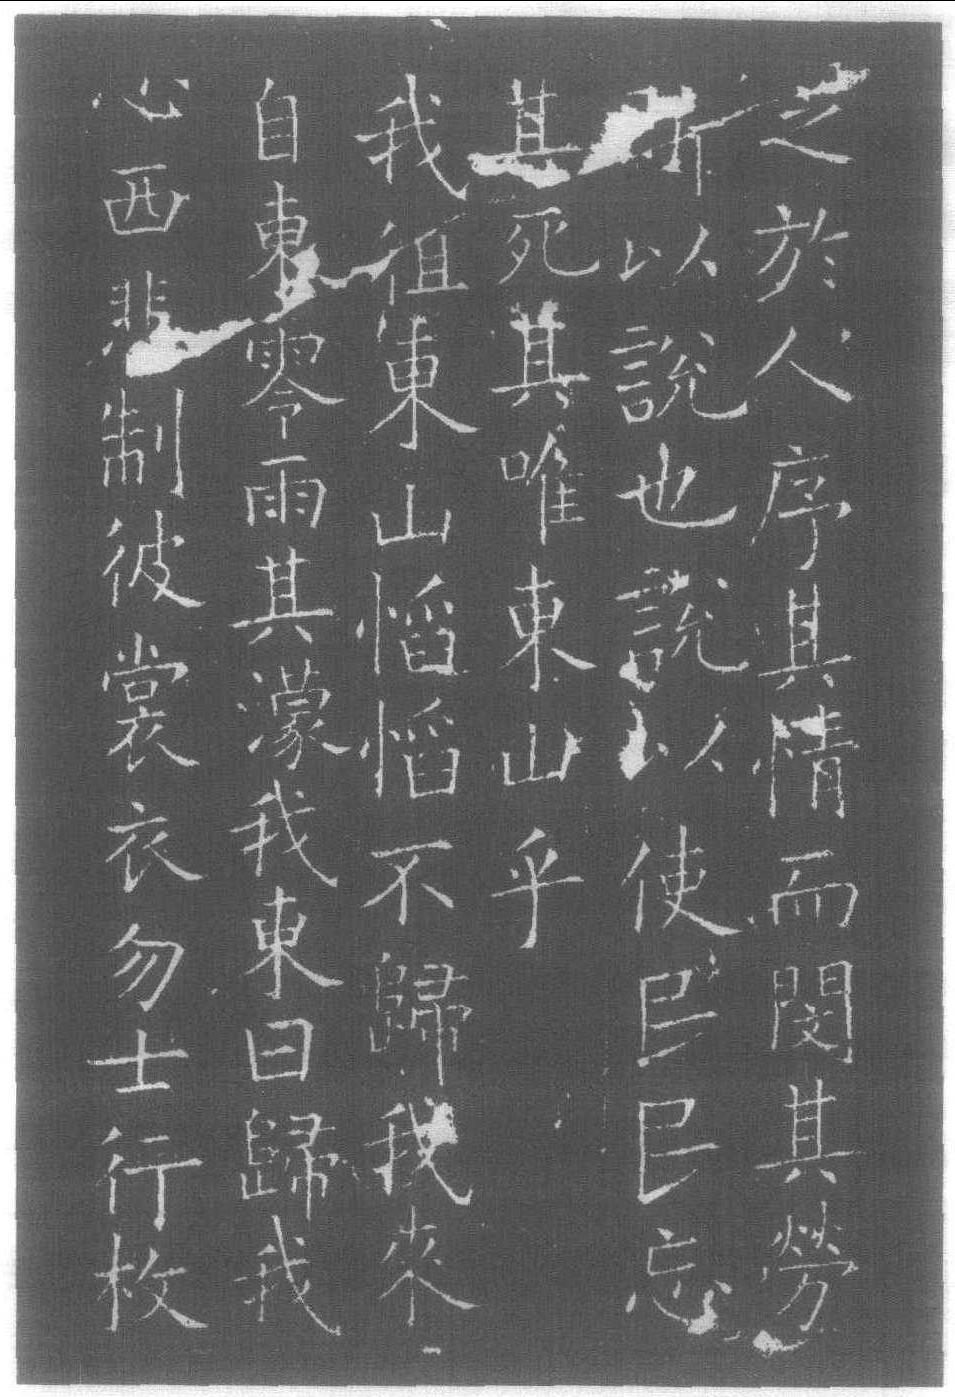 之於人序其情而閔其勞
所以說也說以使民民忘
其死其唯東山乎
我徂東山慆慆不歸我來
自東零雨其濛我東曰歸我
心西悲制彼裳衣勿士行枚